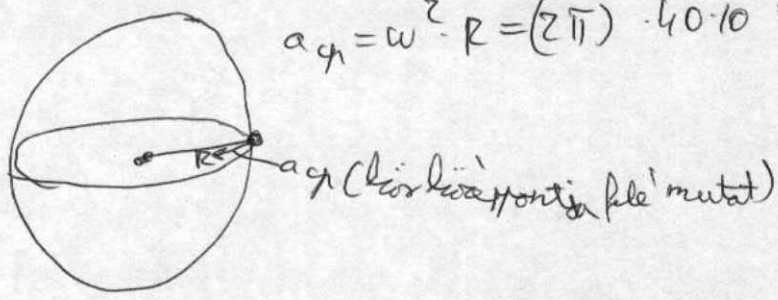 a_cp = ω² · R = (2π) · 40·10
R
a_cp (kör középpontja felé mutat)